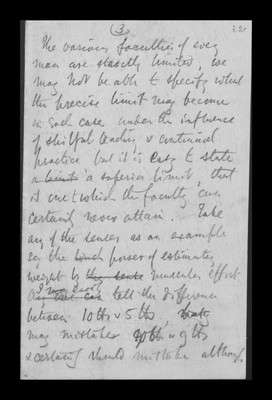 (3)
The various faculties of every
man are strictly limited, we
may not be able to specify what
the precise limit may become
in each case under the influence
of skilful teaching & continual
practice but it is easy to state
a limit a superior limit, that
is one to which the faculty can
certainly never attain. Take
any of the senses as an example
say the touch power of estimating
weight by the sense muscular effort
I may easily tell the difference
between 10 lbs & 5 lbs,
may mistake 10 lbs & 9 lbs
& certainly should mistake although